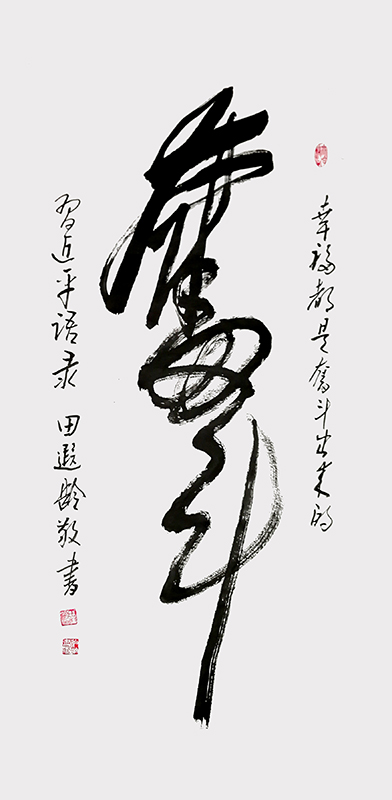 幸福都是奋斗出来的
奋斗
习近平语录 田遐龄敬书